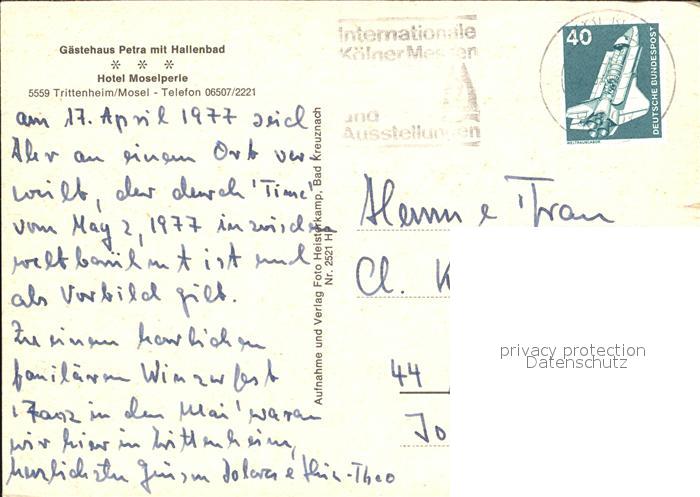 Gästehaus Petra mit Hallenbad
Hotel Moselperle
5559 Trittenheim/Mosel - Telefon 06507/2221
am 17. April 1977 seid
Ihr an einem Ort ver-
weilt, der durch 'Time'
vom May 2, 1977 inzwischen
weltberühmt ist und
als Vorbild gilt.
Zu einem herrlichen
familiären Winzerfest
'Tanz in den Mai' waren
wir hier in Trittenheim,
herzlichste Grüsse Dolores e Hein-Theo
Aufnahme und Verlag Foto Heisterkamp, Bad Kreuznach
Nr. 2521 H
Internationale
Kölner Messen
und
Ausstellungen
40
DEUTSCHE BUNDESPOST
WELTRAUMLABOR
Herrn e Frau
Cl. K
44
privacy protection
Datenschutz